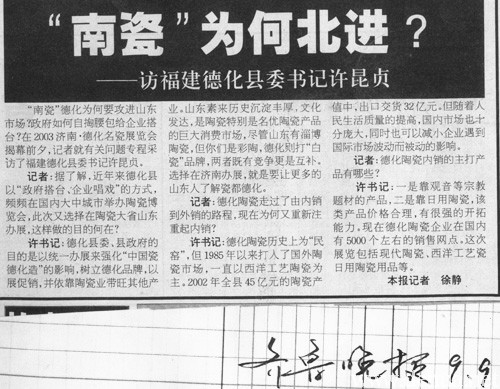 “南瓷”为何北进？
——访福建德化县委书记许昆贞
“南瓷”德化为何要攻进山东
市场?政府如何自掏腰包给企业搭
台?在2003济南·德化名瓷展览会
揭幕前夕，记者就有关问题专程采
访了福建德化县委书记许昆贞。
记者:据了解，近年来德化县
以“政府搭台、企业唱戏”的方式，
频频在国内大中城市举办陶瓷博
览会，此次又选择在陶瓷大省山东
办展，这样做的目的何在?
许书记:德化县委、县政府的
目的是以统一办展来强化“中国瓷
德化造”的影响，树立德化品牌，以
展促销，并依靠陶瓷业带旺其他产
业。山东素来历史沉淀丰厚，文化
发达，是陶瓷特别是名优陶瓷产品
的巨大消费市场，尽管山东有淄博
陶瓷，但你们是彩陶，德化则打“白
瓷”品牌，两者既有竞争更是互补。
选择在济南办展，就是要让更多的
山东人了解瓷都德化。
记者:德化陶瓷走过了由内销
到外销的路程，现在为何又重新注
重起内销?
许书记:德化陶瓷历史上为“民
窑”，但1985年以来打入了国外陶
瓷市场，一直以西洋工艺陶瓷为
主。2002年全县45亿元的陶瓷产
值中，出口交货32亿元。但随着人
民生活质量的提高，国内市场也十
分庞大，同时也可以减小企业遇到
国际市场波动而被动的影响。
记者:德化陶瓷内销的主打产
品有哪些?
许书记:一是靠观音等宗教
题材的产品，二是靠日用陶瓷，该
类产品价格合理，有很强的开拓
能力。现在德化陶瓷企业在国内
有5000个左右的销售网点。这次
展览包括现代陶瓷、西洋工艺瓷
日用陶瓷用品等。
本报记者 徐静
齐鲁晚报 9.9